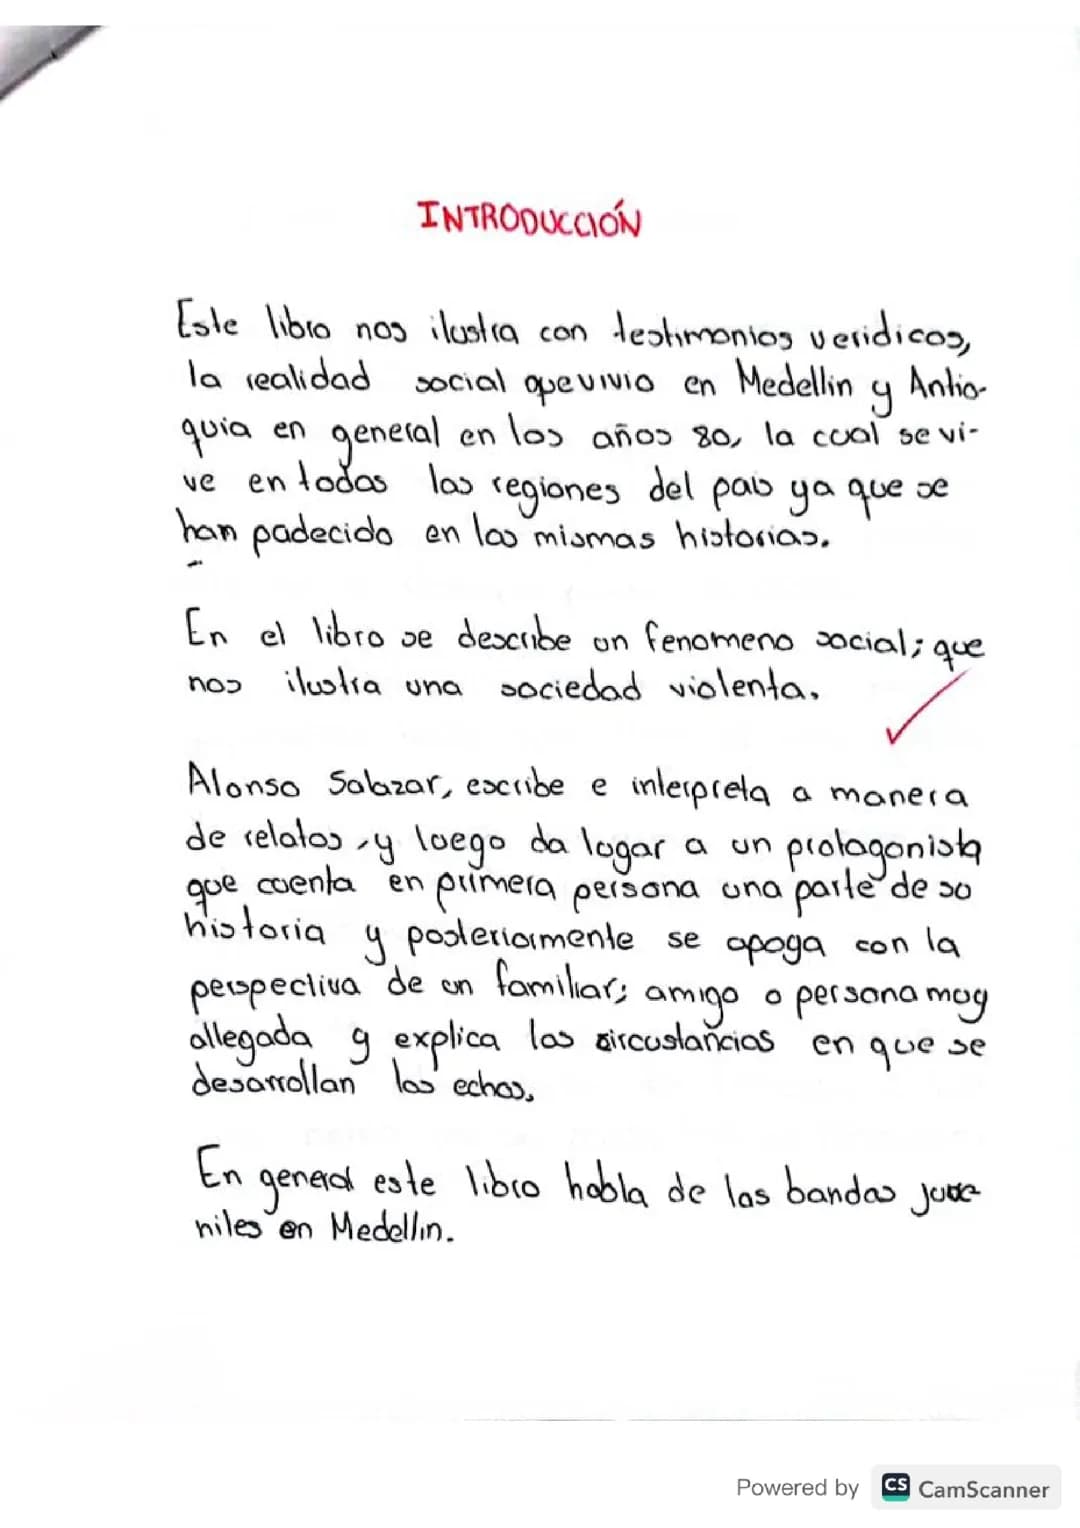 INTRODUCCIÓN
Este libro nos ilustra con testimonios veridicos,
la realidad social que vivio en Medellin y Antio-
quia en general en los años 80, la cual se vi-
ve en todas las regiones del pais ya que se
han padecido en las mismas historias.
En el libro se describe un fenomeno social; que
nos ilustra una sociedad violenta.
Alonso Salazar, escribe e interpreta a manera
de relatos, y luego da lugar a un protagonista
que cuenta en primera persona una parte de su
historia y posteriormente se apoya con la
perspectiva de un familiar; amigo o persona muy
allegada y explica las circustancias en que se
desarrollan los echos.
En general este libro habla de las bandas juve-
niles en Medellin.
Powered by CS CamScanner